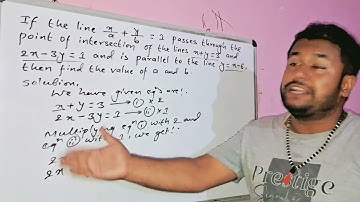 If the line x/a + y/b = 1 passes through the
point of intersection of the lines x+y=3 and
2x-3y=1 and is parallel to the line y=x-6,
then find the value of a and b.
Solution,
We have given eqⁿ are!-
x+y=3 → ⓘ × 2
2x-3y=1 → ⓘⓘ × 1
Multiplying eqⁿ ⓘ with 2 and
eqⁿ ⓘⓘ with 1, we get!-
2
2x
Prestige